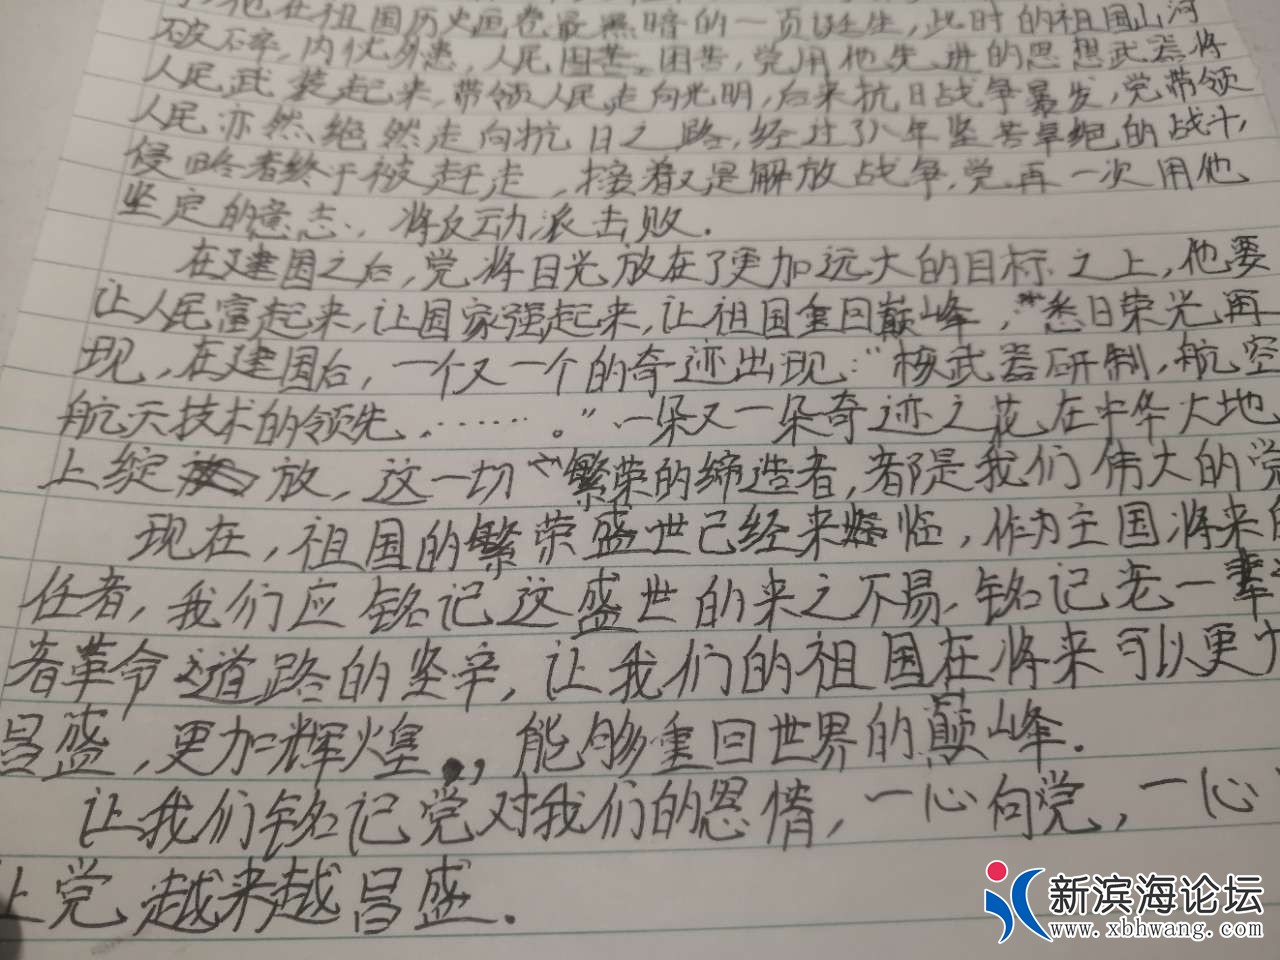 他在祖国历史画卷最黑暗的一页诞生，此时的祖国山河
破碎，内忧外患，人民困苦。困苦，党用他先进的思想武器将
人民武装起来，带领人民走向光明，后来抗日战争暴发，党带领
人民亦然绝然走向抗日之路，经过了八年坚苦卓绝的战斗，
侵略者终于被赶走，接着又是解放战争，党再一次用他
坚定的意志，将反动派击败.
在建国之后，党将目光放在了更加远大的目标之上，他要
让人民富起来，让国家强起来，让祖国重回巅峰，昔日荣光再
现，在建国后，一个又一个的奇迹出现："核武器研制，航空
航天技术的领先……。"一朵又一朵奇迹之花在中华大地
上绽放，这一切繁荣的缔造者，都是我们伟大的党
现在，祖国的繁荣盛世已经来临，作为主国将来的
任者，我们应铭记这盛世的来之不易，铭记老一辈
者革命道路的坚辛，让我们的祖国在将来可以更加
昌盛，更加辉煌，能够重回世界的巅峰.
让我们铭记党对我们的恩情，一心向党，一心
让党越来越昌盛.
新滨海论坛
www.xbhwang.com